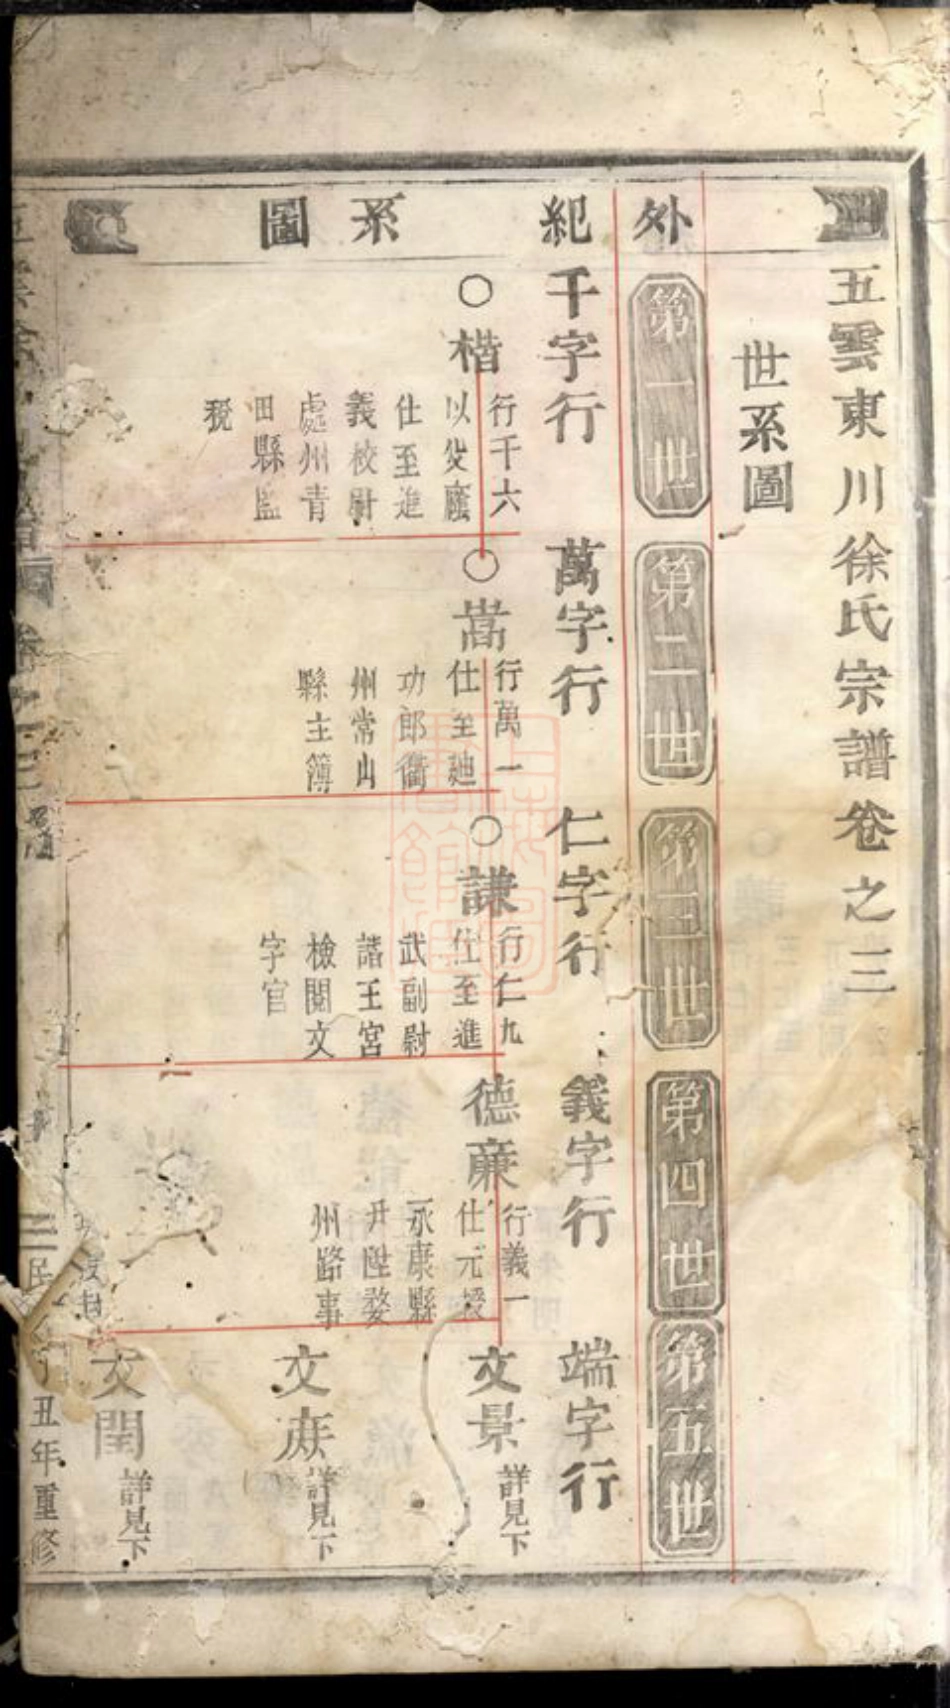 五雲東川徐氏宗譜卷之三
世系圖
外紀系圖
第一世
第二世
第三世
第四世
第五世
千字行
○楷
行千六
以父廕
仕至進
義校尉
處州青
田縣監
稅
萬字行
○嵩
行萬一
仕至廸
功郎衢
州常山
縣主簿
仁字行
○謙
行仁九
仕至進
武副尉
諸王宮
檢閱文
字官
義字行
德廉
行義一
仕元授
永康縣
尹陞婺
州路事
端字行
文景
詳見下
文庶
詳見下
文閏
詳見下
卷之三
民
丑年重修